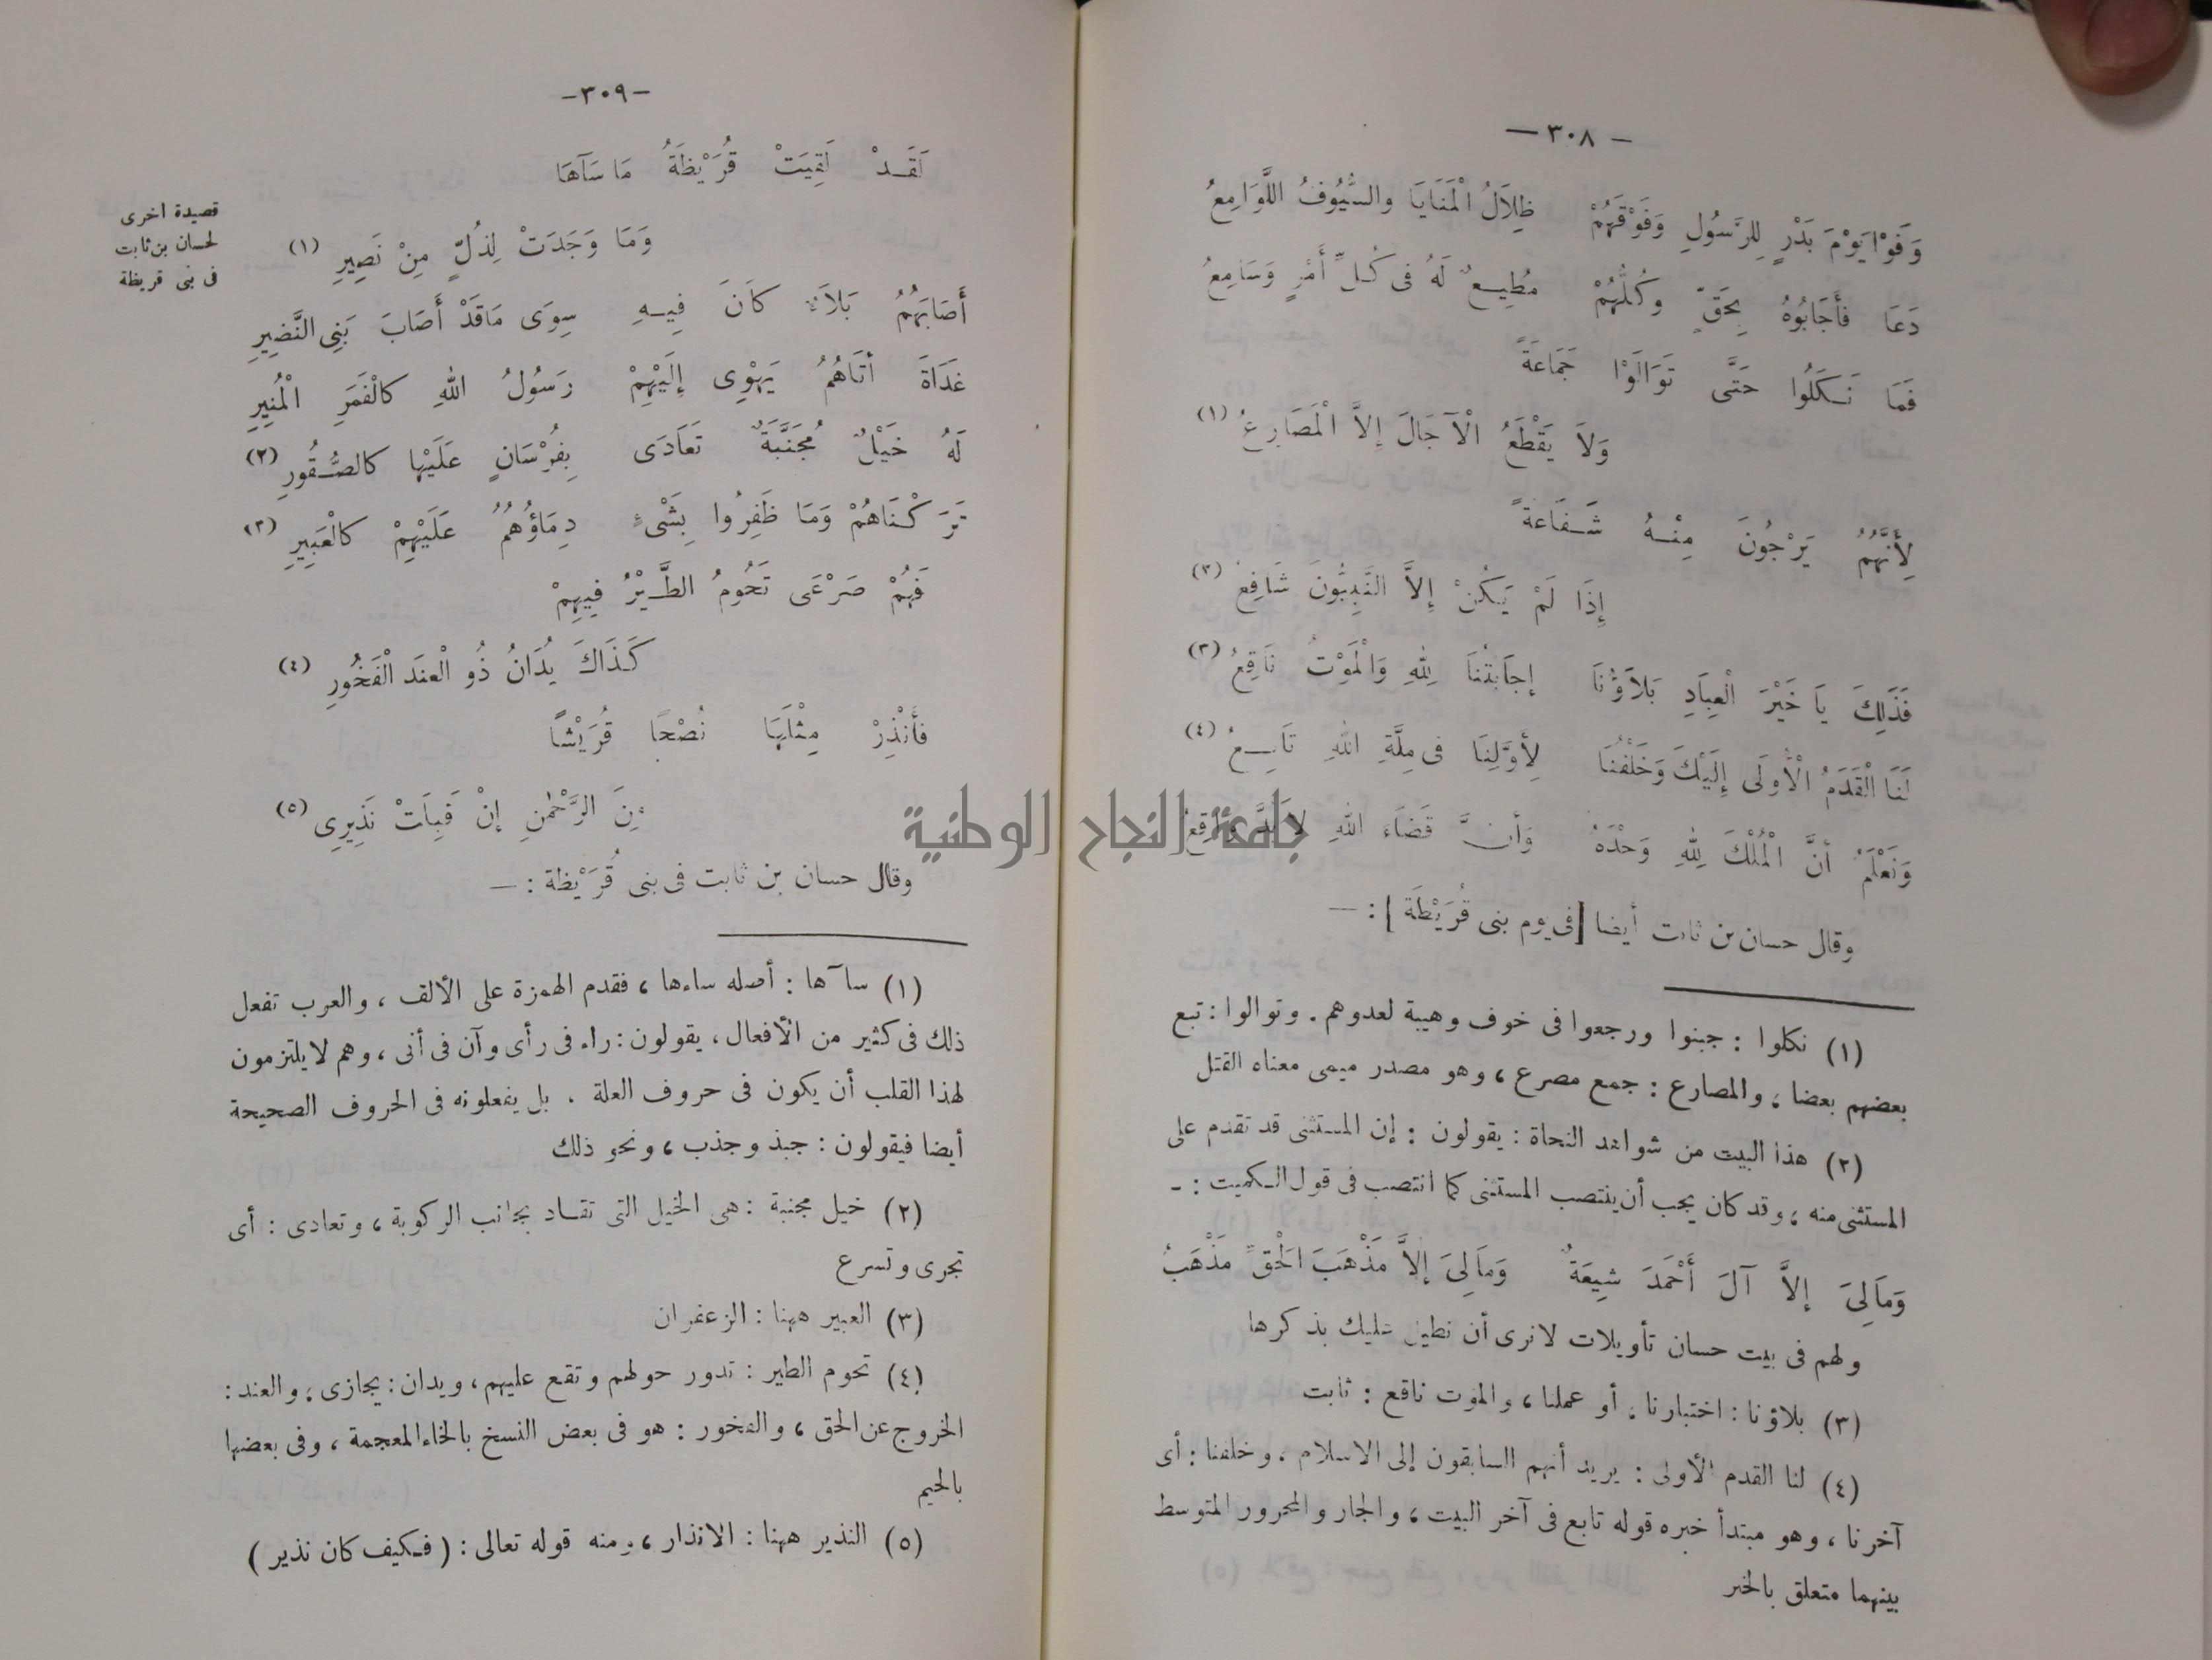 — ٣٠٨ —
وَفَوْا يَوْمَ بَدْرٍ لِلرَّسُولِ وَفَوْقَهُمْ ظِلَالُ الْمَنَايَا والسُّيُوفُ اللَّوَامِعُ
دَعَا فَأَجَابُوهُ بِحَقٍّ وكُلُّهُمْ مُطِيعٌ لَهُ فى كُلِّ أَمْرٍ وَسَامِعُ
فَمَا نَكَلُوا حَتَّى تَوَالَوْا جَمَاعَةً
وَلاَ يَقْطَعُ الْآجَالَ إلاَّ الْمَصَارِعُ (١)
لِأَنَّهُمُ يَرْجُونَ مِنْهُ شَفَاعَةً
إِذَا لَمْ يَكُنْ إِلاَّ النَّبِيُّونَ شَافِعُ (٢)
فَذٰلِكَ يَا خَيْرَ الْعِبَادِ بَلاَؤُنَا إِجَابَتُنَا لِلهِ وَالْمَوْتُ نَاقِعُ (٣)
لَنَا الْقَدَمُ الْأُولَى إِلَيْكَ وَخَلْفُنَا لِأَوَّلِنَا فى مِلَّةِ اللهِ تَابِعُ (٤)
وَنَعْلَمُ أَنَّ الْمُلْكَ لِلهِ وَحْدَهُ وَأَنَّ قَضَاءَ اللهِ لاَبُدَّ وَاقِعُ
وقال حسان بن ثابت أيضا [فى يوم بنى قُرَيْظَةَ] : —
(١) نكلوا : جبنوا ورجعوا فى خوف وهيبة لعدوهم . وتوالوا : تبع
بعضهم بعضا ، والمصارع : جمع مصرع ، وهو مصدر ميمى معناه القتل
(٢) هذا البيت من شواهد النحاة : يقولون : إن المستثنى قد تقدم على
المستثنى منه ، وقد كان يجب أن ينتصب المستثنى كما انتصب فى قول الكميت : -
وَمَالِىَ إلاَّ آلَ أَحْمَدَ شِيعَةٌ وَمَالِىَ إلاَّ مَذْهَبَ الْحَقِّ مَذْهَبُ
ولهم فى بيت حسان تأويلات لا نرى أن نطيل عليك بذكرها
(٣) بلاؤنا : اختبارنا ، أو عملنا ، والموت ناقع : ثابت
(٤) لنا القدم الأولى : يريد أنهم السابقون إلى الاسلام ، وخلفنا : أى
آخرنا ، وهو مبتدأ خبره قوله تابع فى آخر البيت ، والجار والمجرور المتوسط
بينهما متعلق بالخبر
—٣٠٩—
لَقَدْ لَقِيَتْ قُرَيْظَةُ مَا سَآهَا
وَمَا وَجَدَتْ لِذُلٍّ مِنْ نَصِيرِ (١)
أَصَابَهُمُ بَلاَءٌ كاَنَ فِيهِ سِوَى مَاقَدْ أَصَابَ بَنِى النَّضِيرِ
غَدَاةَ أَتَاهُمُ يَهْوِى إِلَيْهِمْ رَسُولُ اللهِ كالْقَمَرِ الْمُنِيرِ
لَهُ خَيْلٌ مُجَنَّبَةٌ تَعَادَى بِفُرْسَانٍ عَلَيْهَا كالصُّقُورِ (٢)
تَرَكْنَاهُمْ وَمَا ظَفِرُوا بِشَىْءٍ دِمَاؤُهُمُ عَلَيْهِمْ كالْعَبِيرِ (٣)
فَهُمْ صَرْعَى تَحُومُ الطَّيْرُ فِيهِمْ
كَذَاكَ يُدَانُ ذُو الْعنَد الْفَخُورِ (٤)
فأَنْذِرْ مِثْلَهَا نُصْحًا قُرَيْشًا
مِنَ الرَّحْمٰنِ إنْ قَبِلَتْ نَذِيرِى (٥)
وقال حسان بن ثابت فى بنى قُرَيْظة : —
قصيدة اخرى
لحسان بن ثابت
فى بنى قريظة
(١) سآها : أصله ساءها ، فقدم الهمزة على الألف ، والعرب تفعل
ذلك فى كثير من الأفعال ، يقولون : راء فى رأى وآن فى أنى ، وهم لا يلتزمون
لهذا القلب أن يكون فى حروف العلة . بل يفعلونه فى الحروف الصحيحة
أيضا فيقولون : جبذ وجذب ، ونحو ذلك
(٢) خيل مجنبة : هى الخيل التى تقاد بجانب الركوبة ، وتعادى : أى
تجرى وتسرع
(٣) العبير ههنا : الزعفران
(٤) تحوم الطير : تدور حولهم وتقع عليهم ، ويدان : يجازى ، والعند :
الخروج عن الحق ، والفخور : هو فى بعض النسخ بالخاء المعجمة ، وفى بعضها
بالجيم
(٥) النذير ههنا : الانذار ، ومنه قوله تعالى : ( فكيف كان نذير )
جامعة النجاح الوطنية